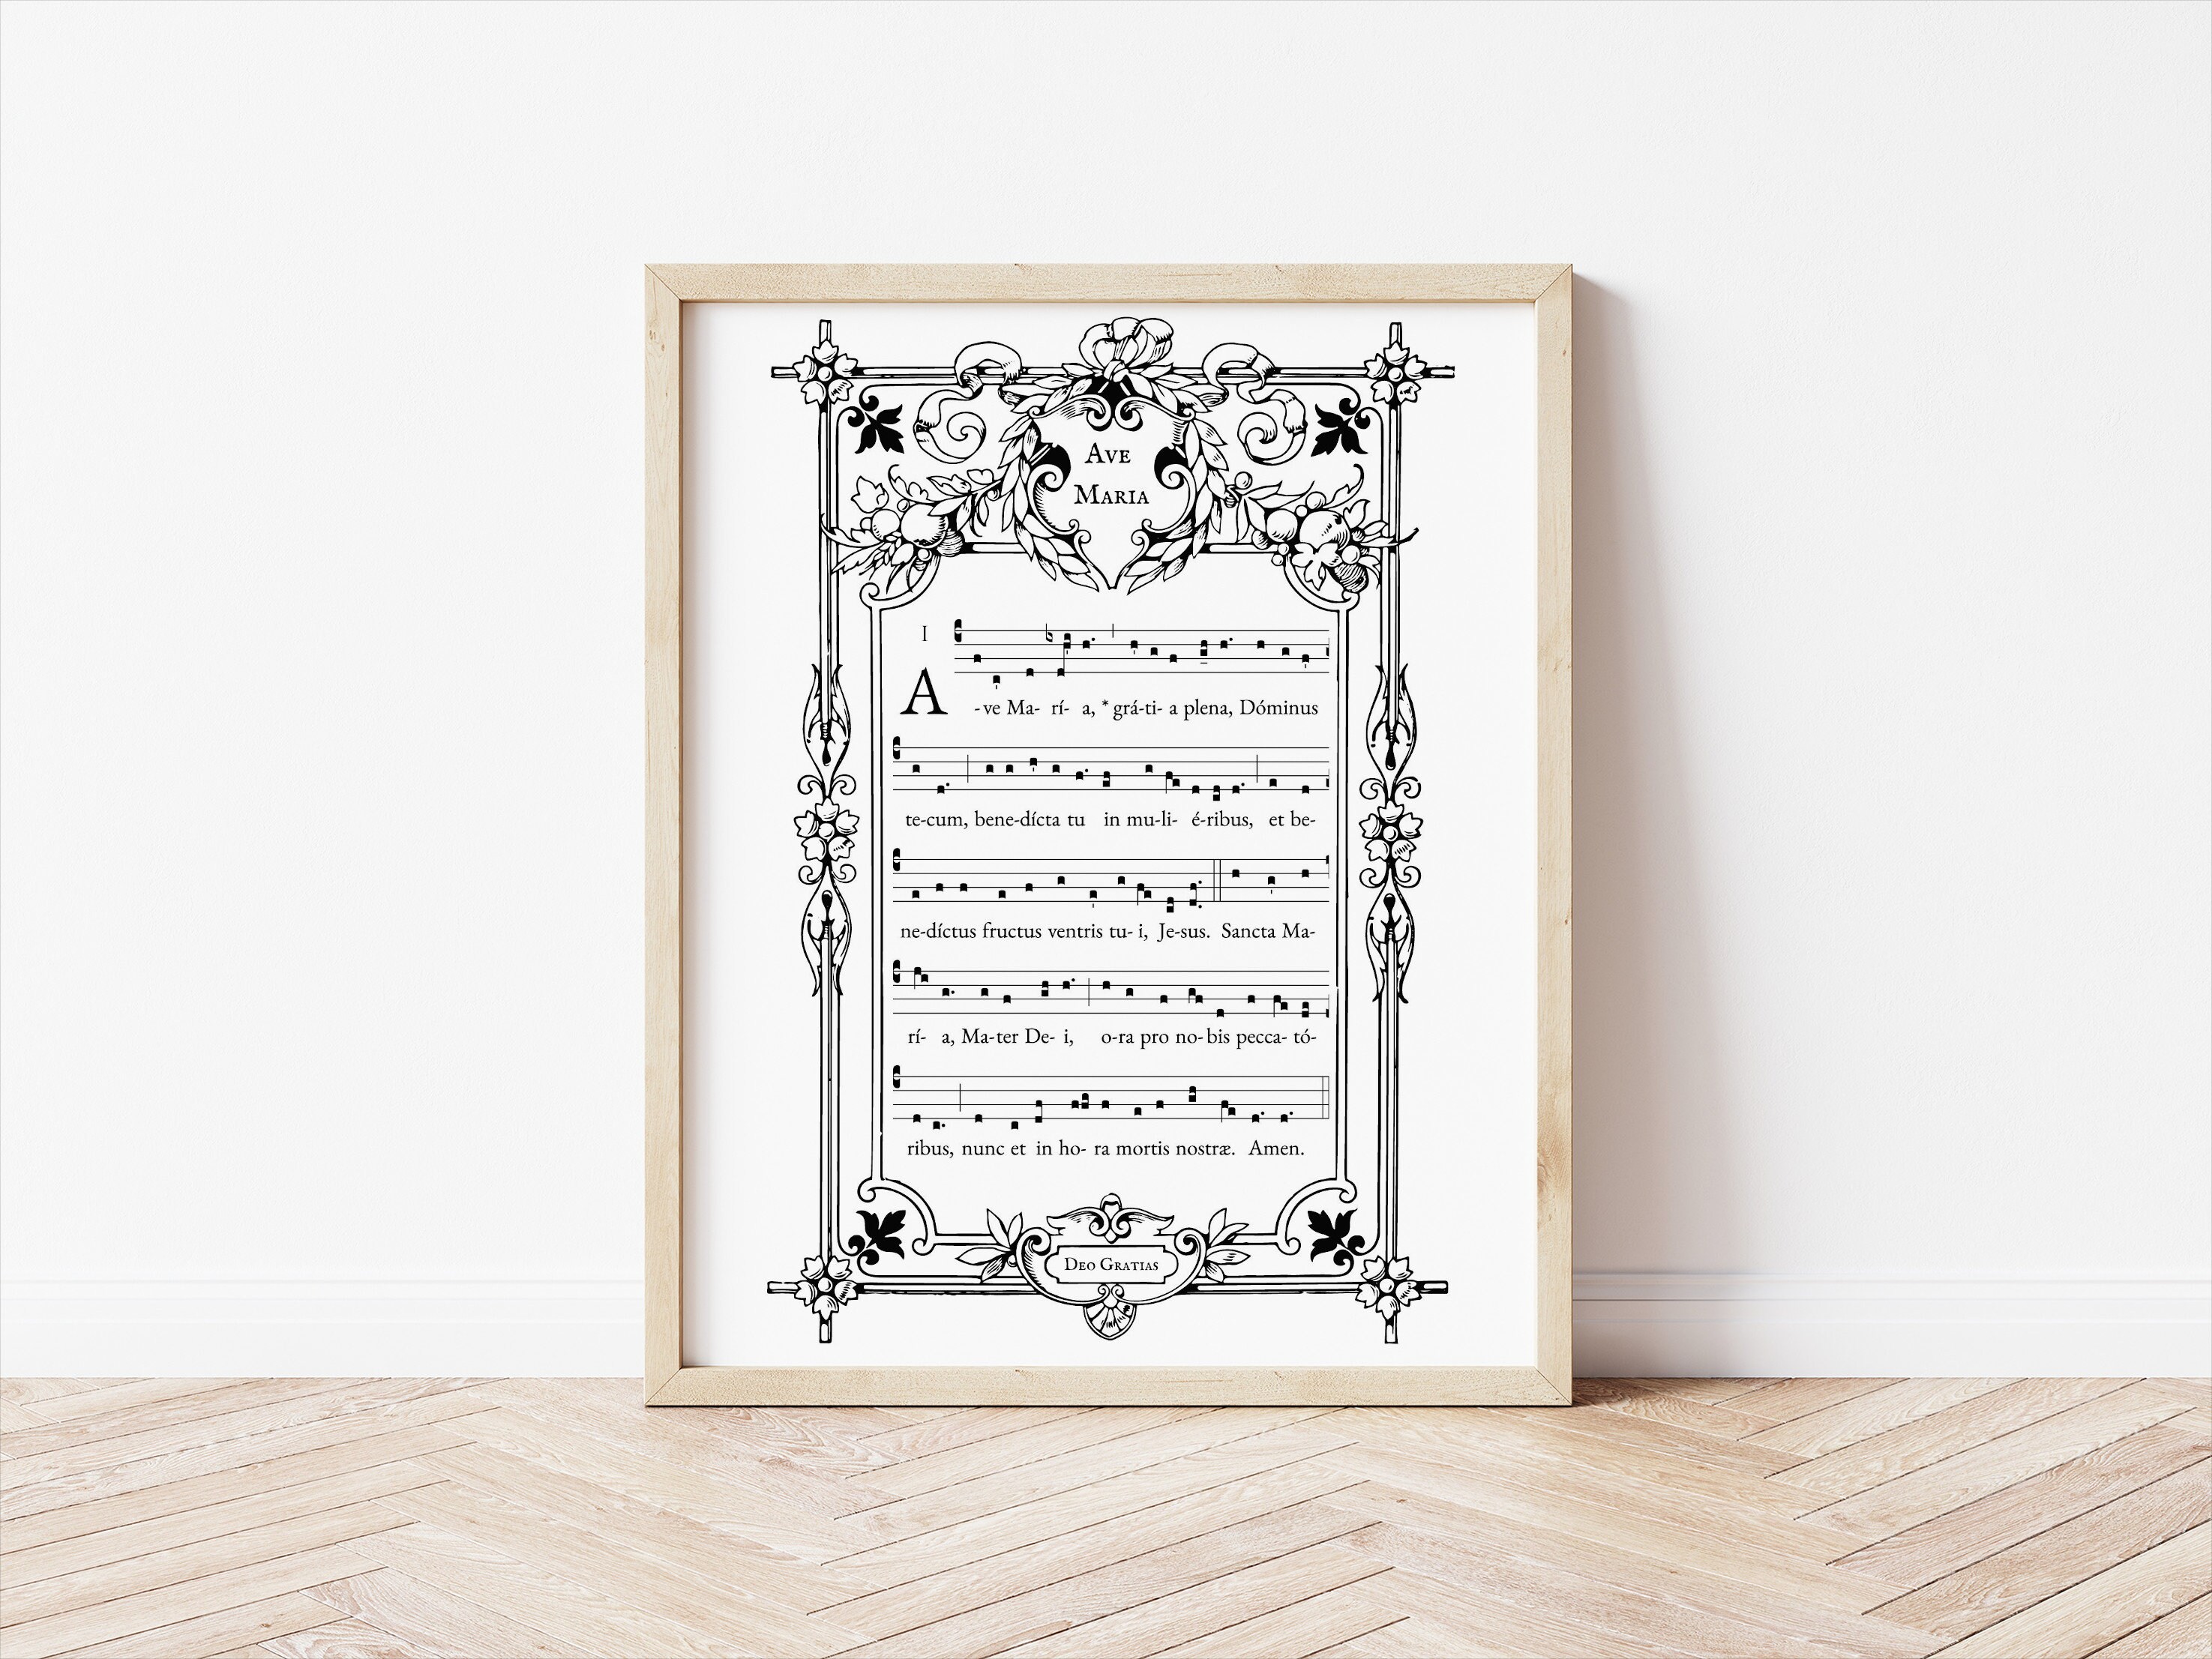 Ave
Maria
I
A -ve Ma- rí- a, * grá-ti- a plena, Dóminus
te-cum, bene-dícta tu in mu-li- é-ribus, et be-
ne-díctus fructus ventris tu- i, Je-sus. Sancta Ma-
rí- a, Ma-ter De- i, o-ra pro no-bis pecca- tó-
ribus, nunc et in ho- ra mortis nostræ. Amen.
Deo Gratias